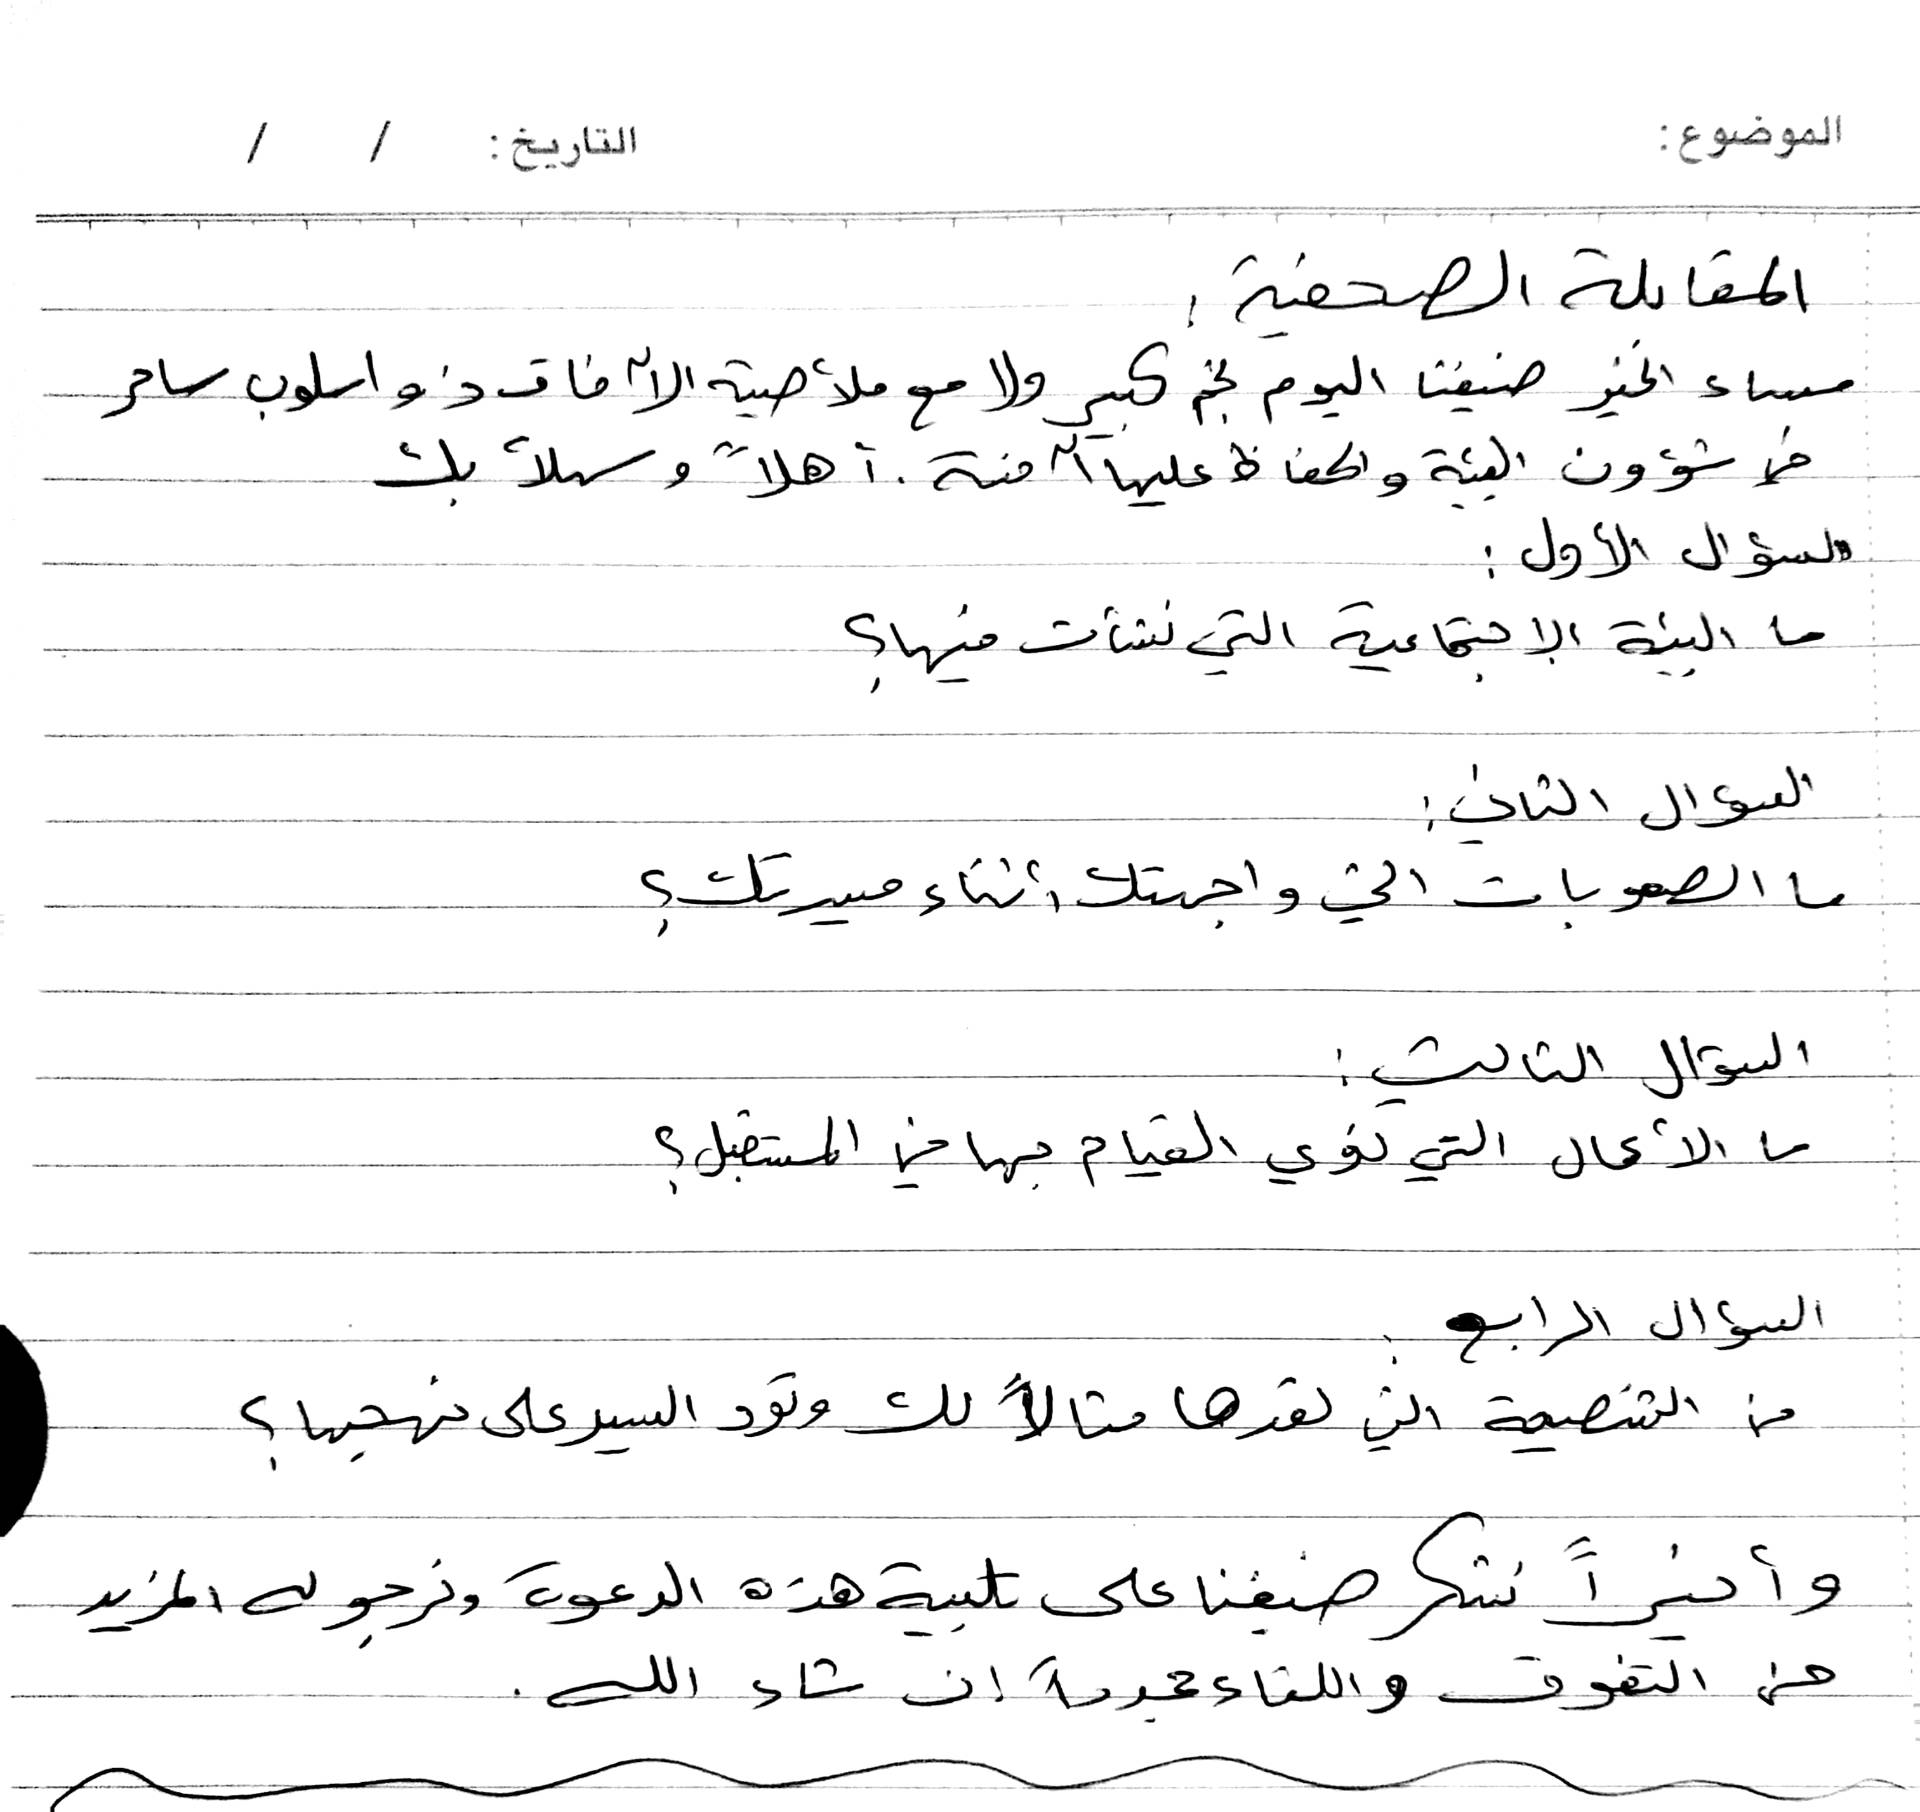 الموضوع: التاريخ: / /
المقابلة الصحفية:
مساء الخير ضيفنا اليوم نجم كبير ولامع ملأ صيته الآفاق ذو اسلوب ساحر
في شؤون البيئة والحفاظ عليها آمنة. أهلاً وسهلاً بك
السؤال الأول:
ما البيئة الاجتماعية التي نشأت فيها؟
السؤال الثاني:
ما الصعوبات التي واجهتك أثناء مسيرتك؟
السؤال الثالث:
ما الأعمال التي تنوي القيام بها في المستقبل؟
السؤال الرابع:
من الشخصية التي تعدها مثالاً لك وتود السير على نهجها؟
وأخيراً نشكر ضيفنا على تلبية هذه الدعوة ونرجو له المزيد
من التفوق واللقاء مجدداً إن شاء الله.